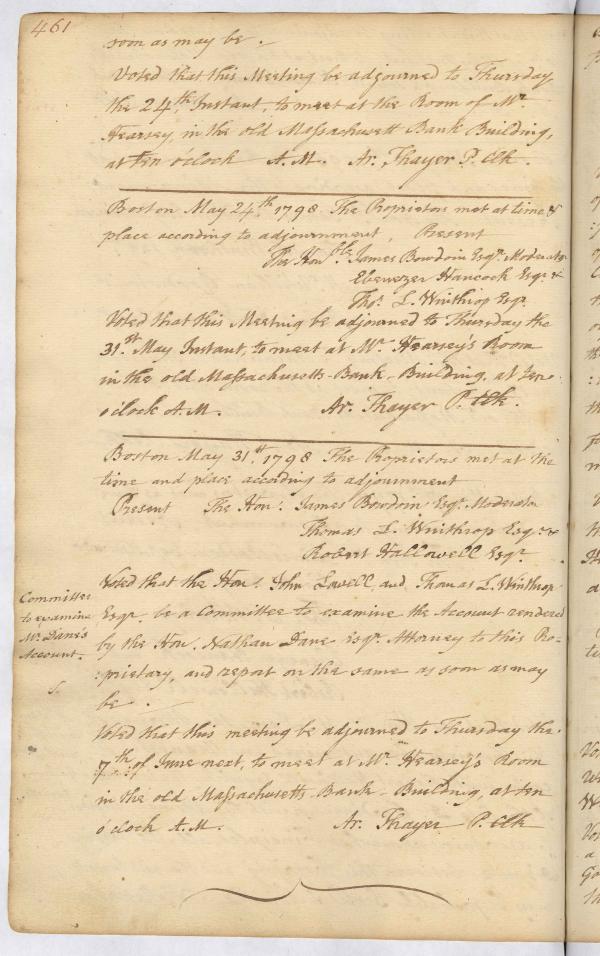 461
soon as may be.
Voted that this Meeting be adjourned to Thursday
the 24th. Instant, to meet at the Room of Mr.
Hearsey, in the old Massachusett Bank Building,
at ten o'clock A.M. Ar. Thayer P. Clk.
Boston May 24th. 1798 The Proprietors met at time &
place according to adjournment, Present
The Honble. James Bowdoin Esqr. Moderator
Ebenezer Hancock Esqr. &
Thos. L. Winthrop Esqr.
Voted that this Meeting be adjourned to Thursday the
31st. May Instant, to meet at Mr. Hearsey's Room
in the old Massachusetts-Bank-Building, at ten
o'clock A.M. Ar. Thayer P. Clk.
Boston May 31st. 1798 The Proprietors met at the
time and place according to adjournment
Present The Hon: James Bowdoin Esqr. Moderator
Thomas L. Winthrop Esqr. &
Robert Hallowell Esqr.
Voted that the Hon. John Lowell, and Thomas L. Winthrop
Esqr. be a Committee to examine the Account rendered
by the Hon. Nathan Dane Esqr. Attorney to this Pro-
:prietary, and report on the same as soon as may
be.
Committee
to examine
Mr. Dane's
Account.
Voted that this meeting be adjourned to Thursday the
7th. of June next, to meet at Mr. Hearsey's Room
in the old Massachusetts-Bank-Building, at ten
o'clock A.M. Ar. Thayer P. Clk